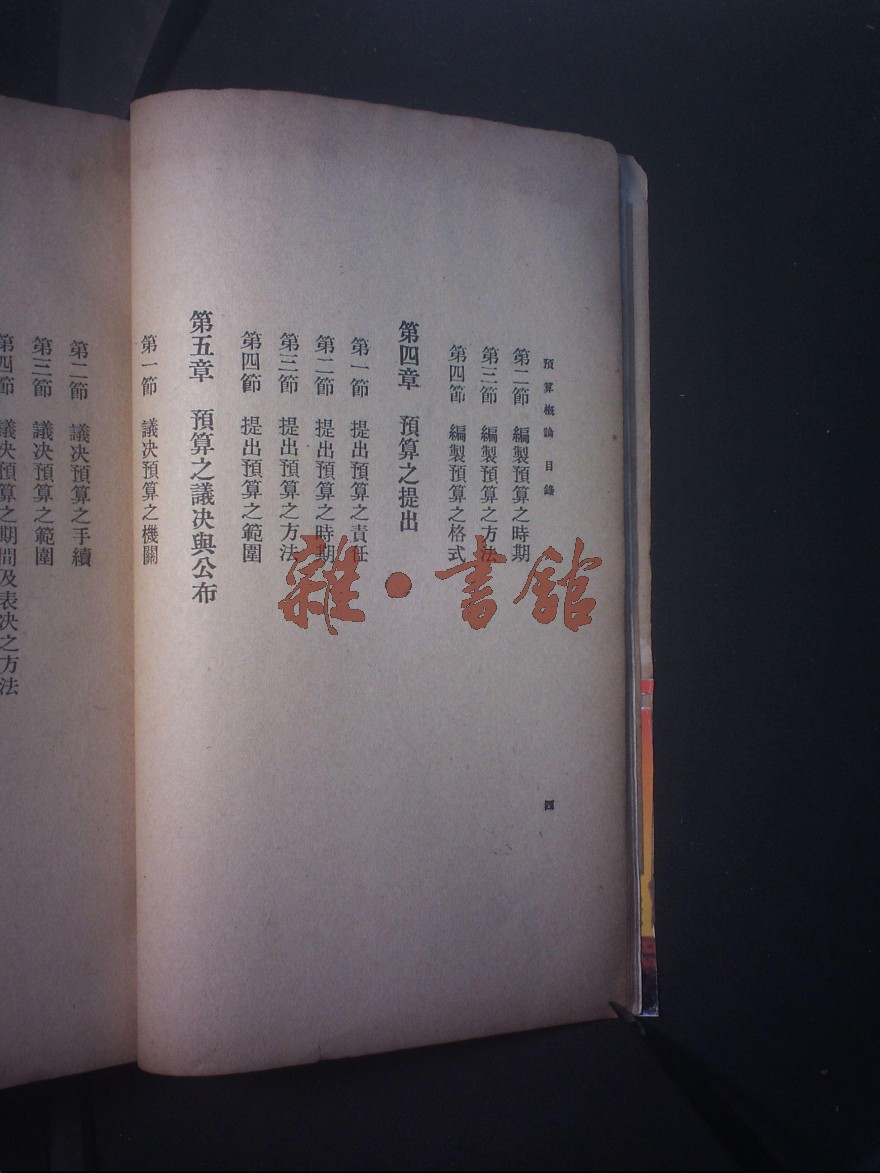 預算概論 目錄
第二節 編製預算之時期
第三節 編製預算之方法
第四節 編製預算之格式
第四章 預算之提出
第一節 提出預算之責任
第二節 提出預算之時期
第三節 提出預算之方法
第四節 提出預算之範圍
第五章 預算之議決與公布
第一節 議決預算之機關
四
第二節 議決預算之手續
第三節 議決預算之範圍
第四節 議決預算之期間及表決之方法
雜·書館